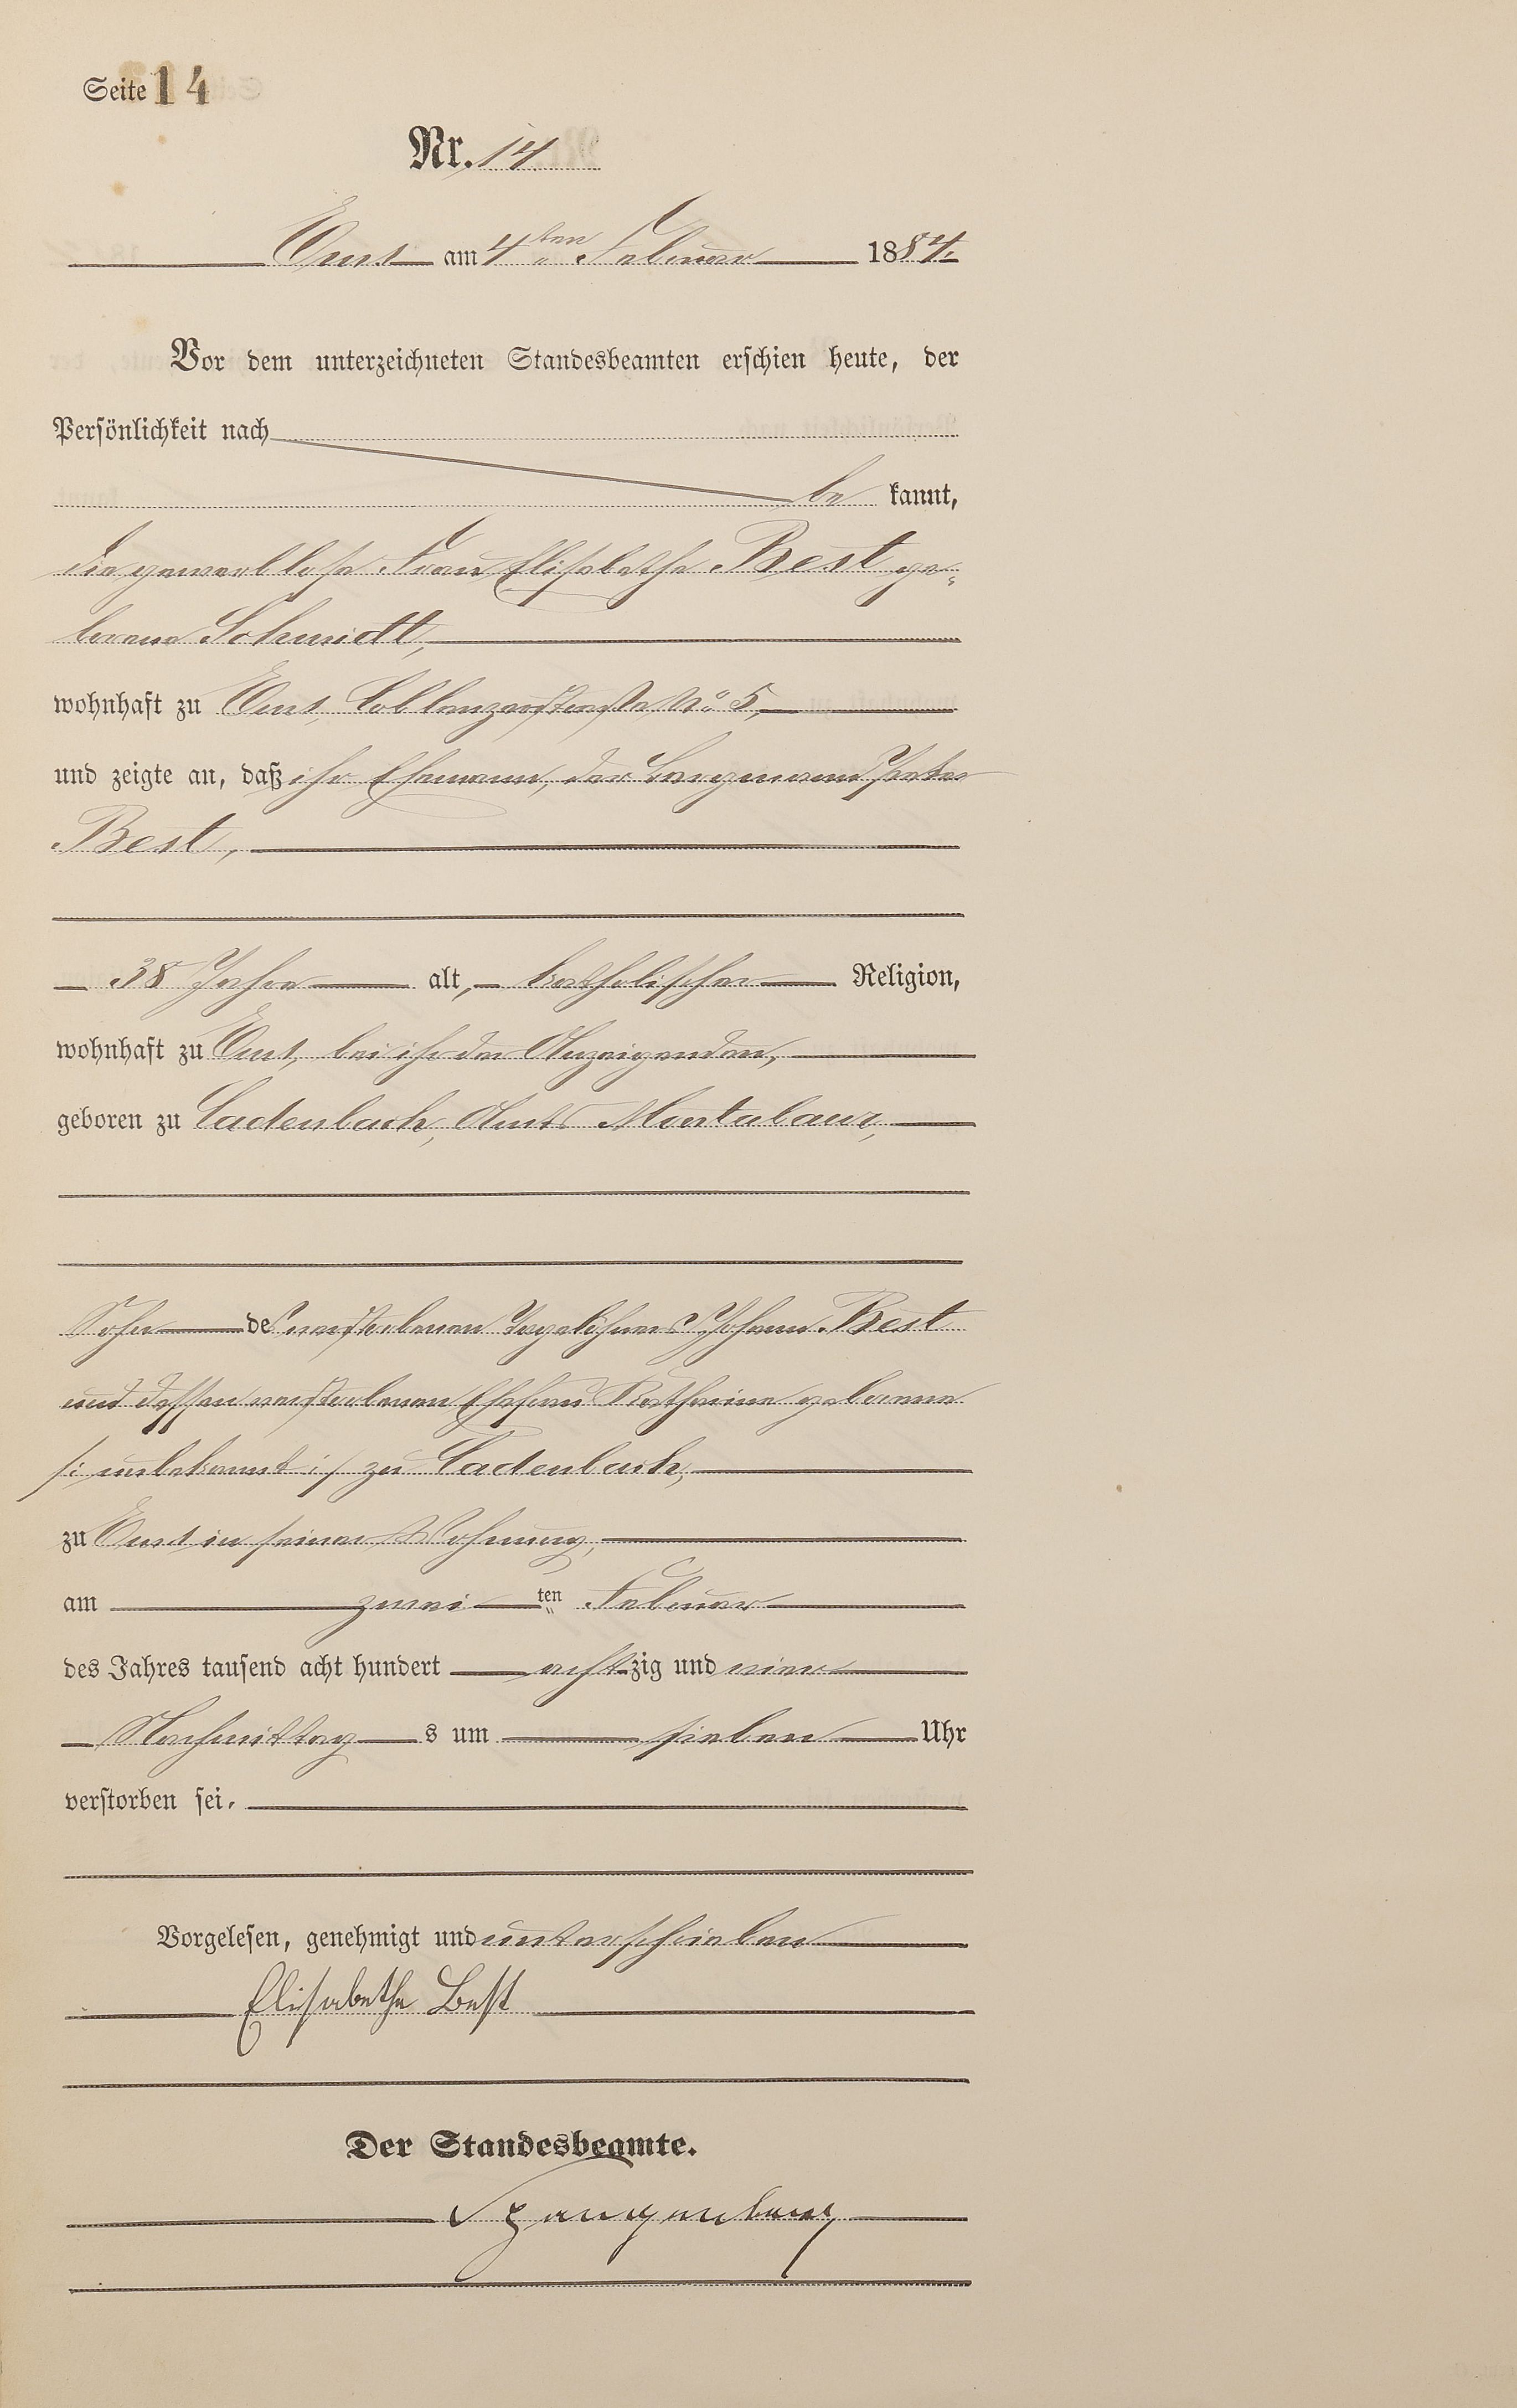 Seite 14
Nr. 14
Ems am 4ten Februar 1884.
Vor dem unterzeichneten Standesbeamten erschien heute, der
Persönlichkeit nach
be kannt,
die gewerblose Frau Elisabetha Best ge-
borene Schmidt,
wohnhaft zu Ems, Coblenzerstraße No 5,
und zeigte an, daß ihr Ehemann, der Bergmann Peter
Best,
38 Jahre alt, katholischer Religion,
wohnhaft zu Ems, bei ihr der Anzeigenden,
geboren zu Cadenbach, Amts Montabaur,
Sohn des verstorbenen Tagelöhners Johann Best
und dessen verstorbenen Ehefrau Katharina geborene
/: unbekannt :/ zu Cadenbach,
zu Ems in seiner Wohnung,
am zwei ten Februar
des Jahres tausend acht hundert acht zig und vier
Nachmittag s um sieben Uhr
verstorben sei.
Vorgelesen, genehmigt und unterschrieben
Elisabetha Best
Der Standesbeamte.
Spangenberg